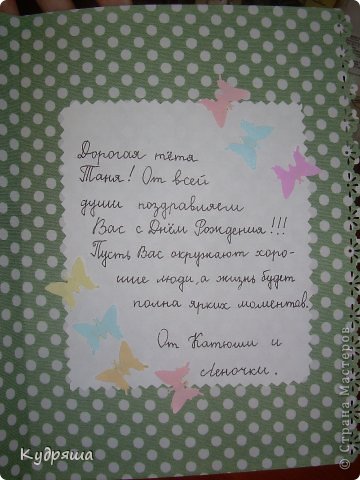 Дорогая тётя
Таня! От всей
души поздравляем
Вас с Днём Рождения!!!
Пусть Вас окружают хоро-
шие люди, а жизнь будет
полна ярких моментов.
От Катюши и
Леночки.
Кудряша
© Страна Мастеров